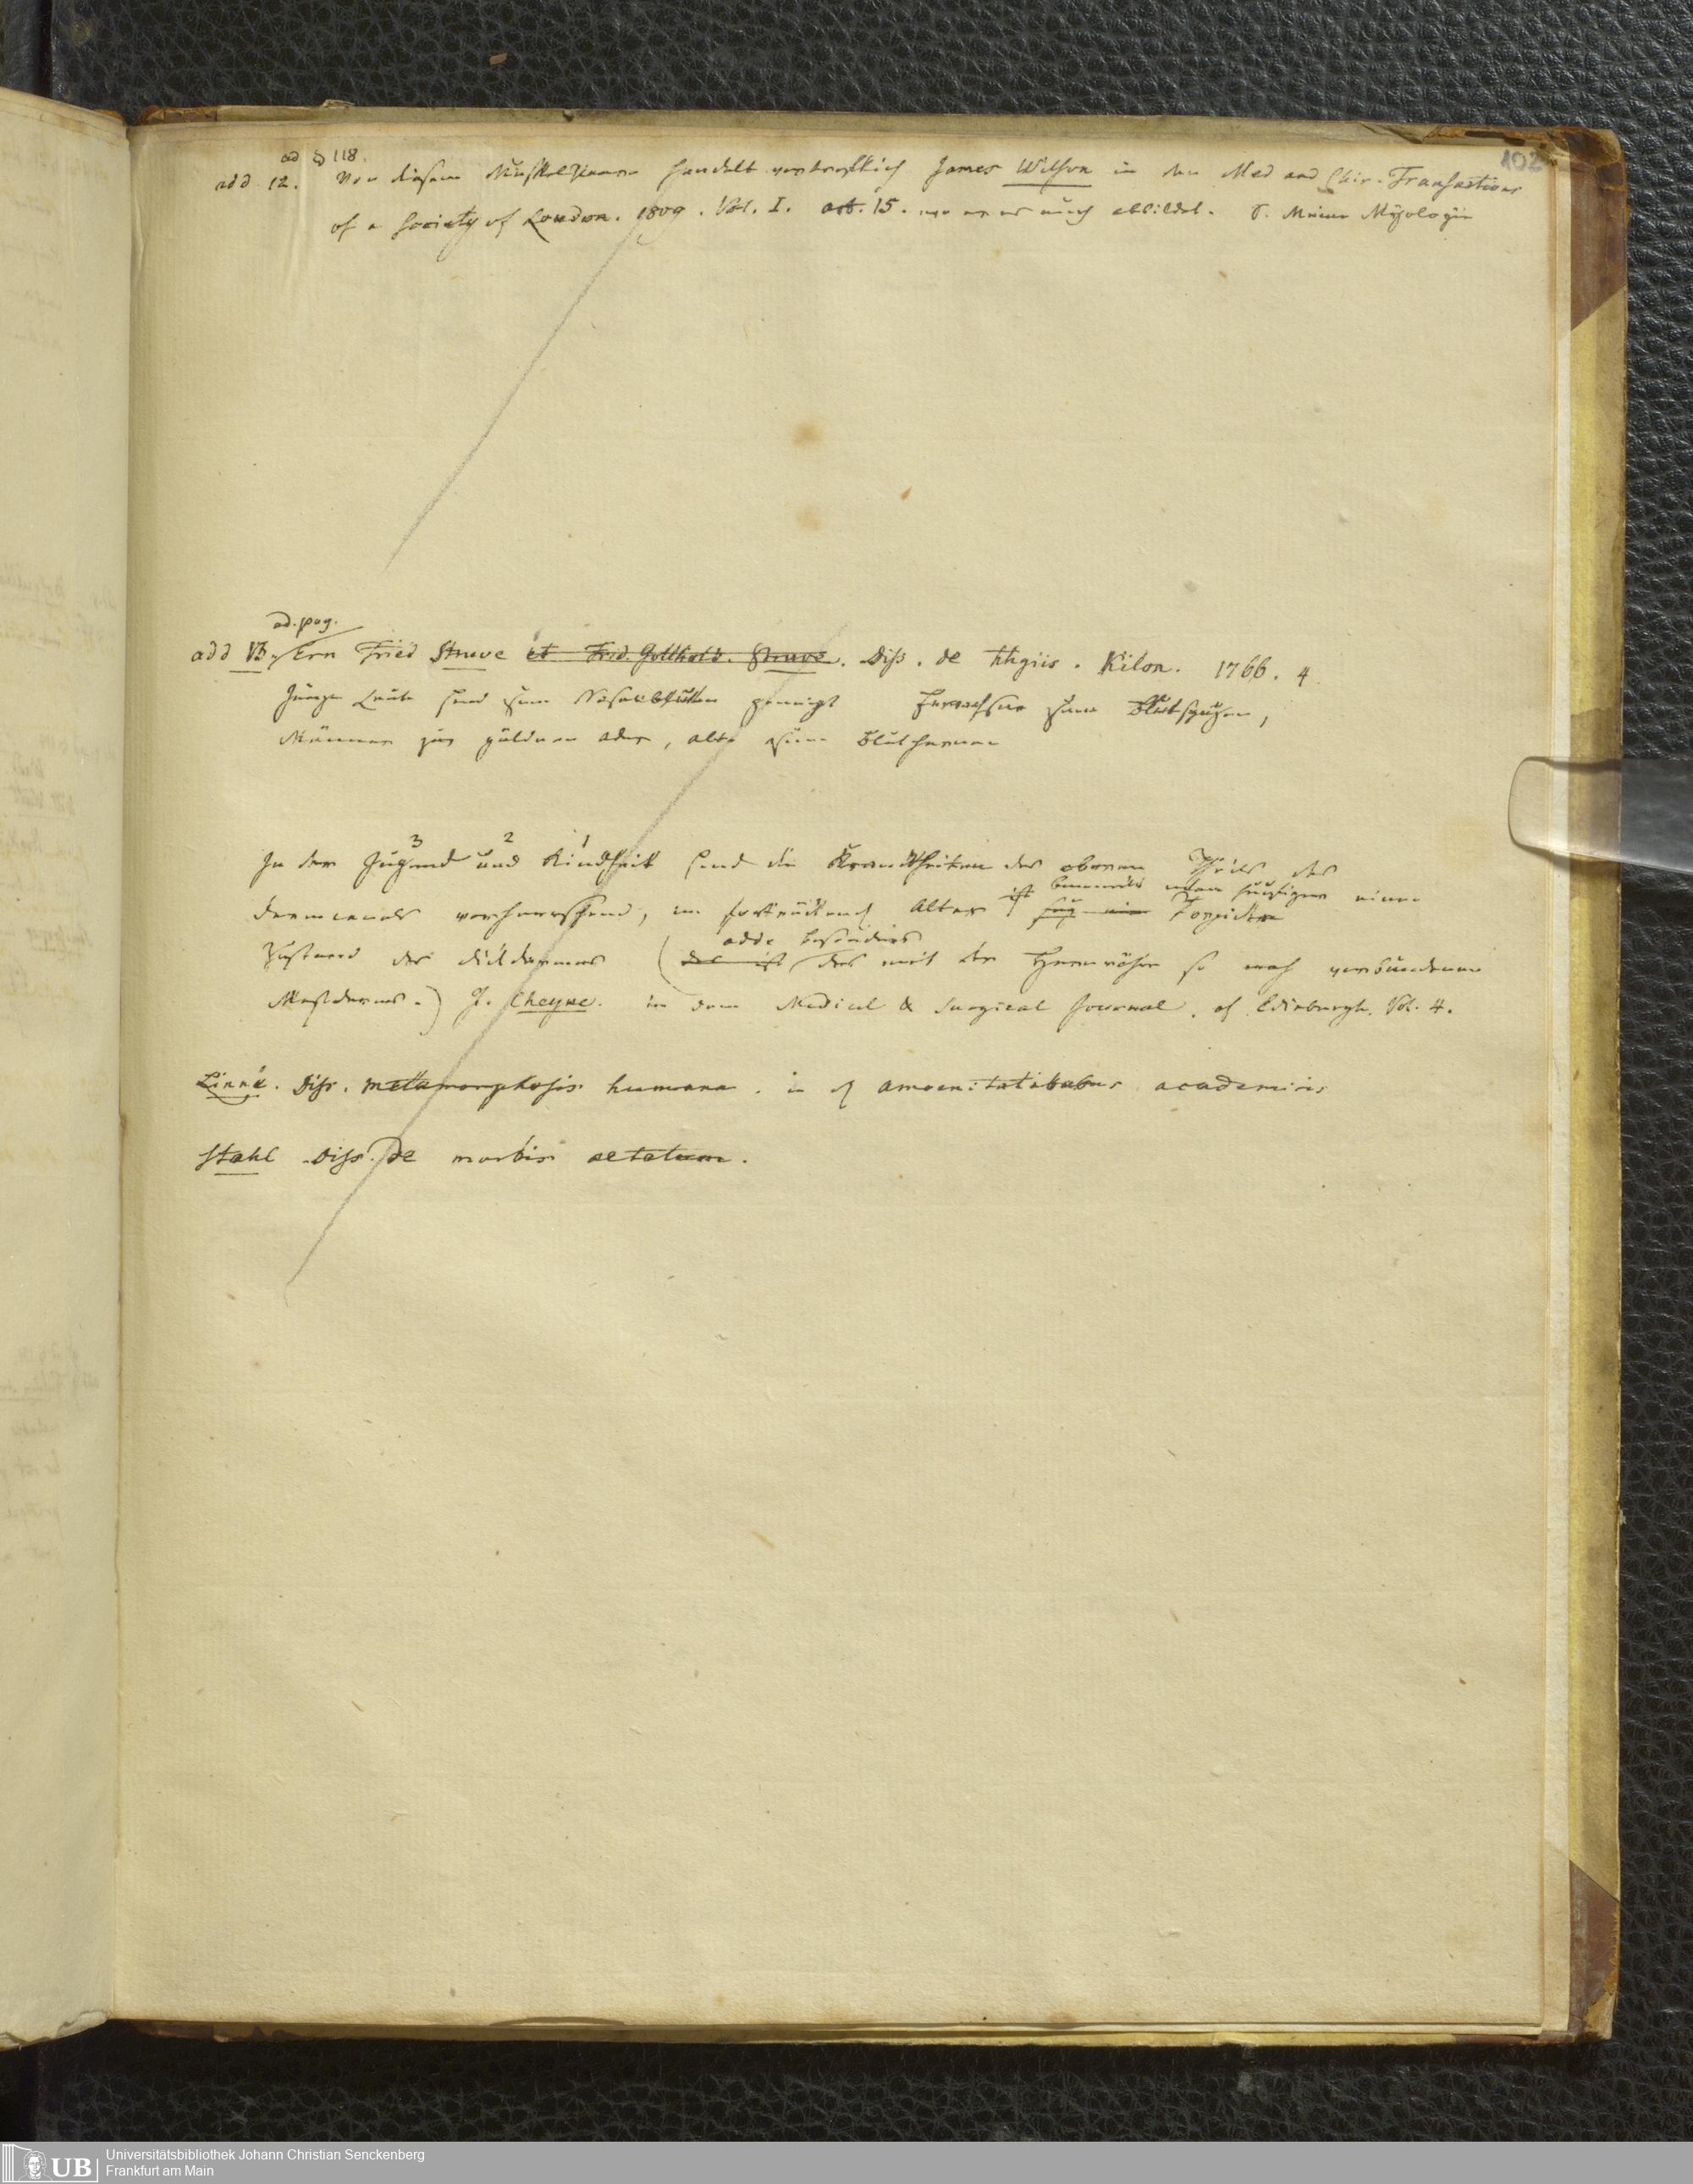 102
ad § 118.
add 12. Von diesem Muskelpaare handelt vortrefflich James Wilson in den Med and Chir. Transactions
of a Society of London. 1809. Vol. I. art. 15. wo er es auch abbildet. S. Meine Myologie
ad. pag.
add Ern Fried Struve et Frid. Gotthold. Struve. Diss. de Kilon. 1766. 4
Junge Leute sind zum Nasenbluten geneigt Erwachsne zum Blutspeyen,
Männer zur güldnen ader, alte zum Blutharnen
3 2 1
In der Jugend und Kindheit sind die Krankheiten des oberen Theils des
ist
Darmcanals vorherrschend, im fortrückend Alter einen
adde besonders
Zustand des dickdarmes (das ist, des mit der Harnröhre so nah verbundenen
Mastdarms.) J. Cheyne. in dem Medical & Surgical Journal. of Edinburgh. Vol. 4.
Linné. Diss. metamorphosis humana. in amoenitatibus academicis
Stahl Diss. De morbis aetatum.
UB
Universitätsbibliothek Johann Christian Senckenberg
Frankfurt am Main